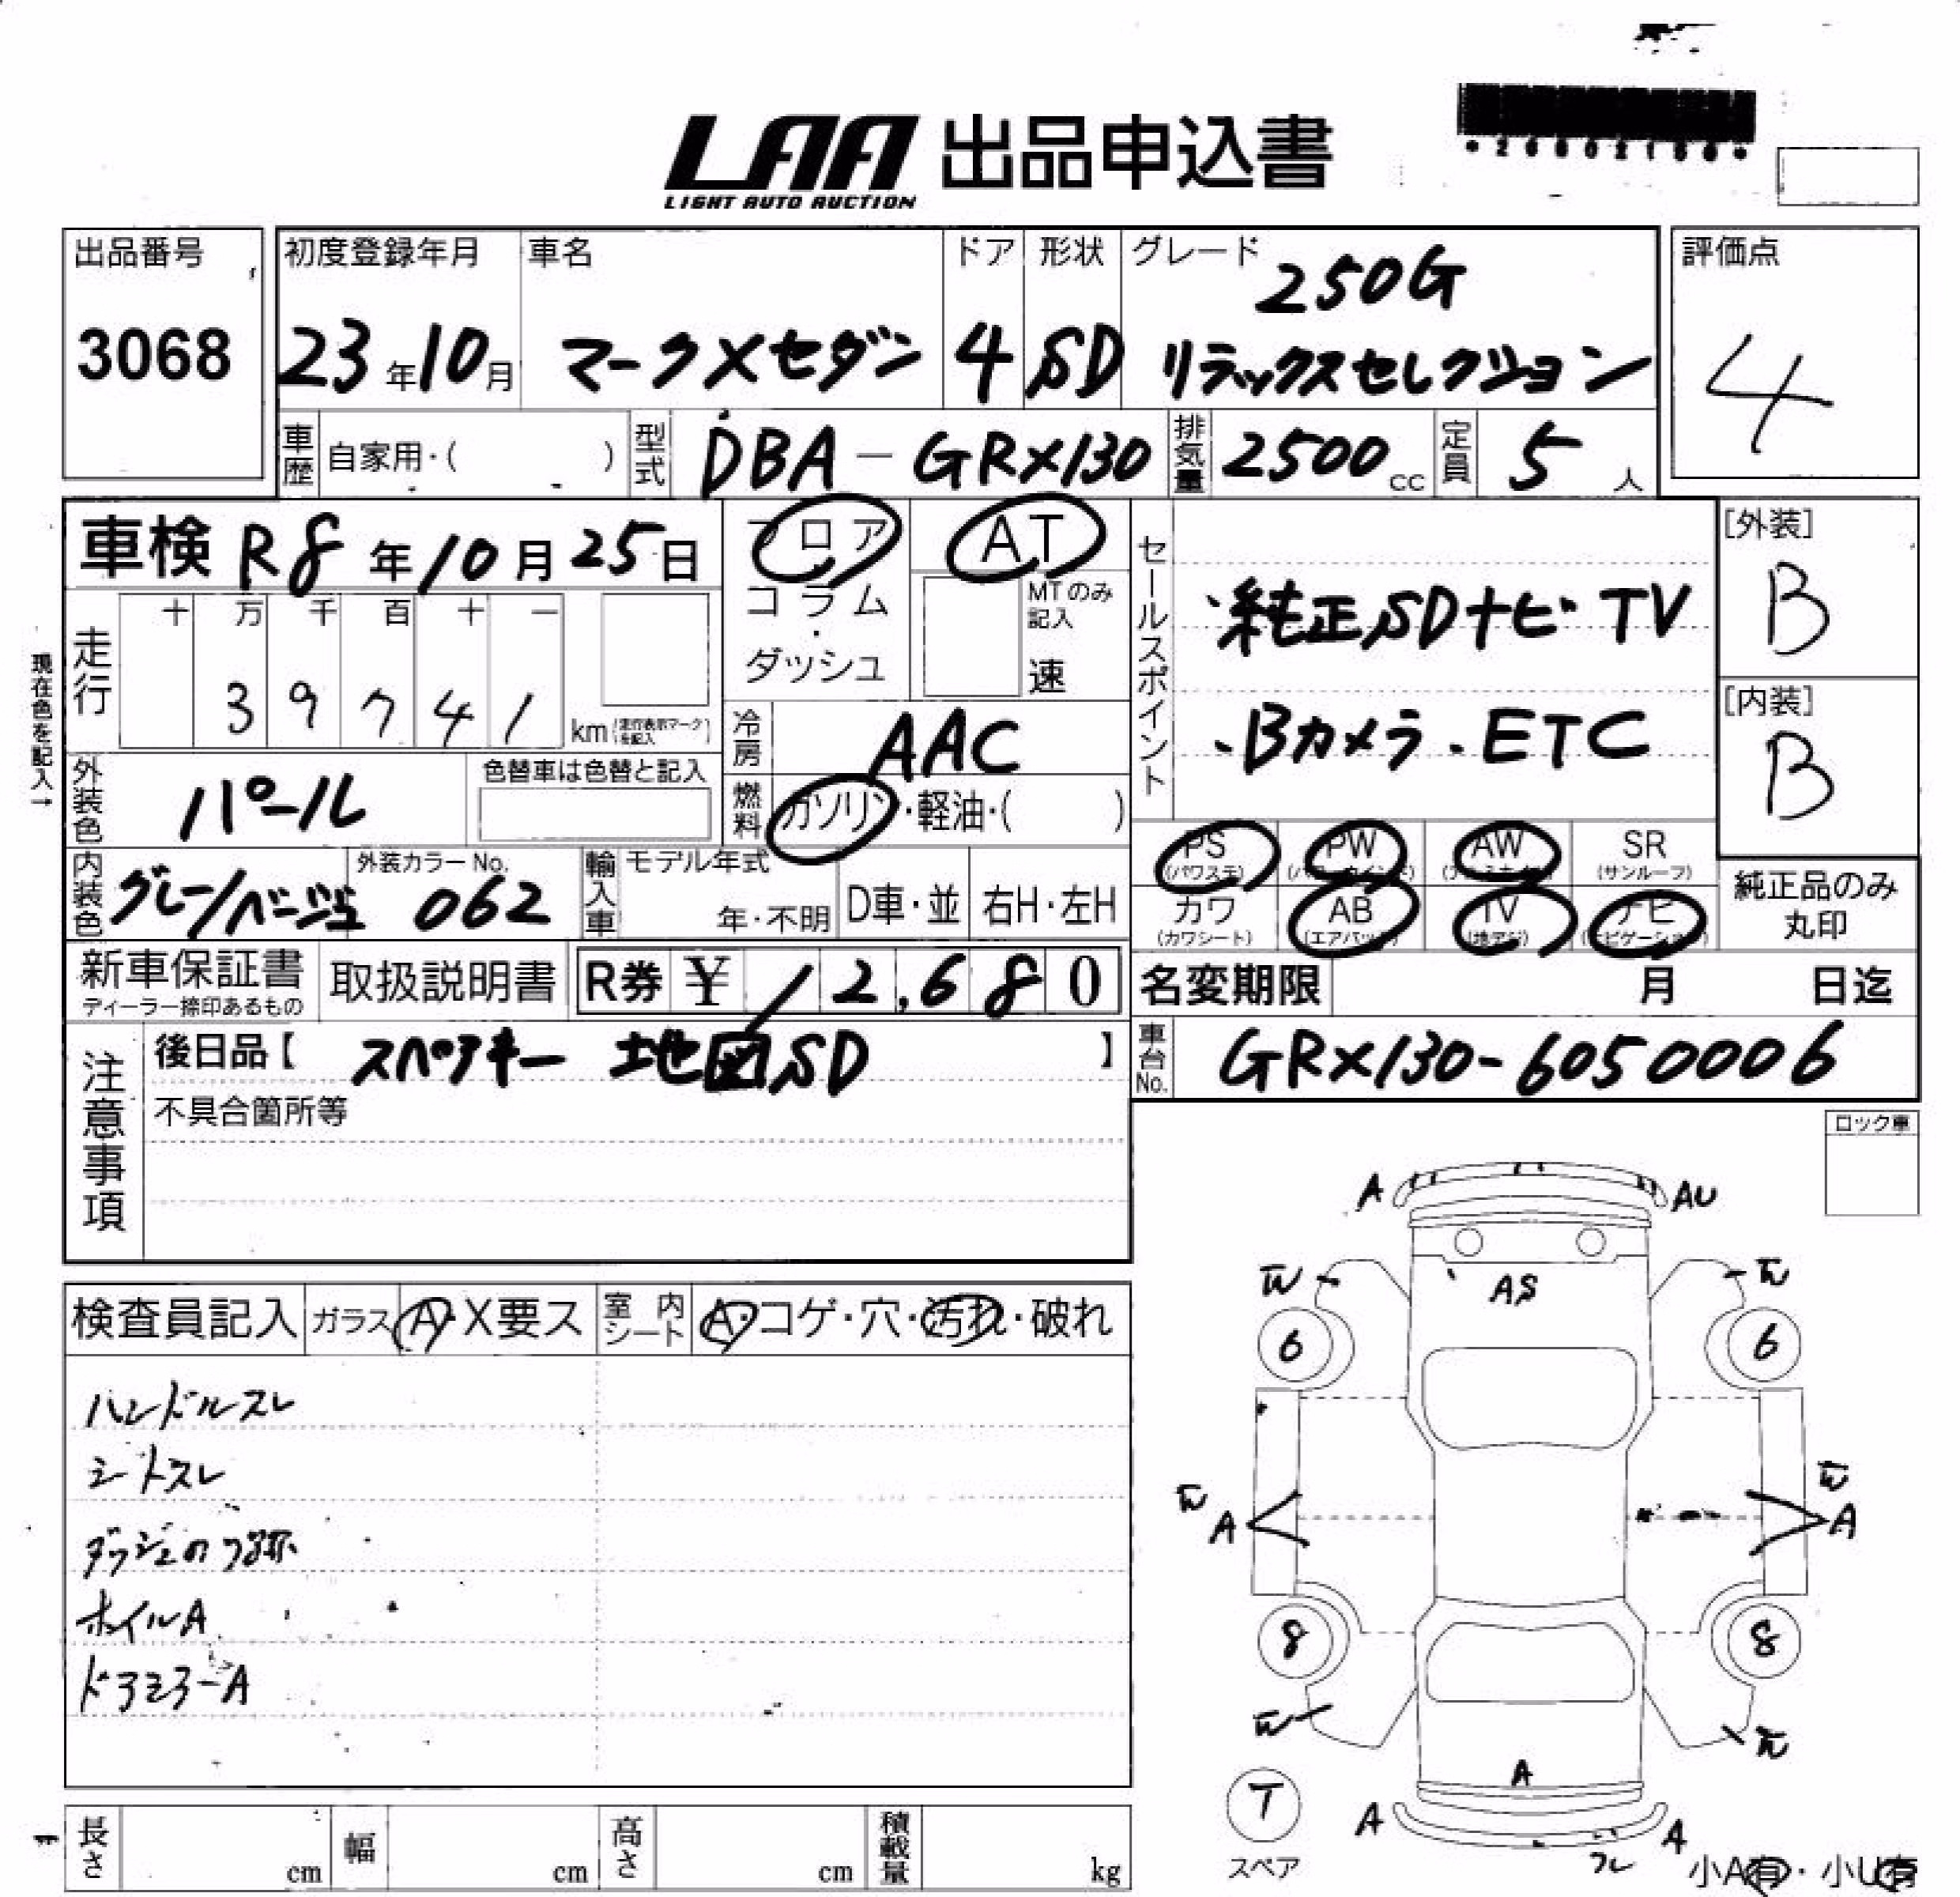 LAA 出品申込書
LIGHT AUTO AUCTION
出品番号
3068
初度登録年月
23年10月
車名
マークXセダン
ドア
4
形状
SD
グレード
250G
リラックスセレクション
評価点
4
車歴 自家用・( )
型式 DBA-GRX130
排気量 2500cc
定員 5人
車検 R8年10月25日
フロア
コラム
・
ダッシュ
AT
MTのみ記入
速
セールスポイント
・純正SDナビ・TV
・Bカメラ・ETC
[外装]
B
[内装]
B
現在色を記入→
走行
十 万 千 百 十 一
3 9 7 4 1 km (走行表示マークを記入)
冷房 AAC
燃料 ガソリン・軽油・( )
外装色 パール
色替車は色替と記入
内装色 グレー/ベージュ
外装カラーNo.
062
輸入車 モデル年式
年・不明
D車・並
右H・左H
PS (パワステ)
PW
AW
SR (サンルーフ)
カワ (カワシート)
AB (エアバッグ)
TV (地デジ)
ナビ (ナビゲーション)
純正品のみ
丸印
新車保証書
ディーラー捺印あるもの
取扱説明書
R券 ¥ 12,680
名変期限 月 日迄
車台No. GRX130-6050006
注意事項
後日品【 スペアキー 地図SD 】
不具合箇所等
ロック車
検査員記入
ガラス A・X要ス
室内シート A・コゲ・穴・汚れ・破れ
ハンドルスレ
シートスレ
ホイルA
ドアミラーA
A
AU
W
AS
W
6
6
W
A
W
A
8
8
W
W
A
T
スペア
A
A
小A有・小U有
長さ cm
幅 cm
高さ cm
積載量 kg